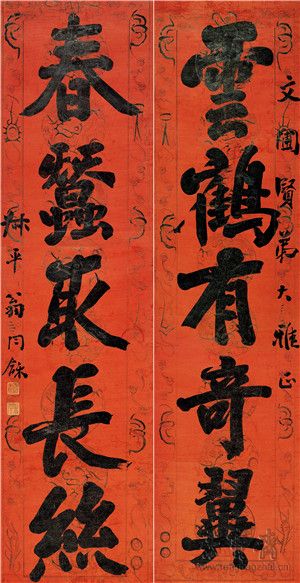 文圃賢弟大雅正
雲鶴有奇翼
春蠶収長絲
叔平翁同龢